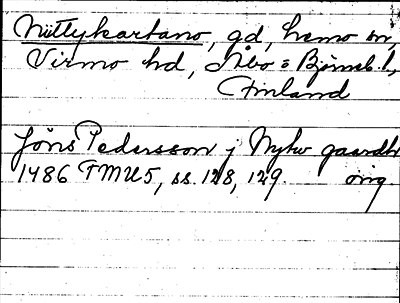 Nüttykartano, gd, Lemo sn,
Virmo hd, Åbo o Björneb. l,
Finland
Jöns Pedersson j Nykw gaardh
1486 FMU5, ss. 128, 129. orig.